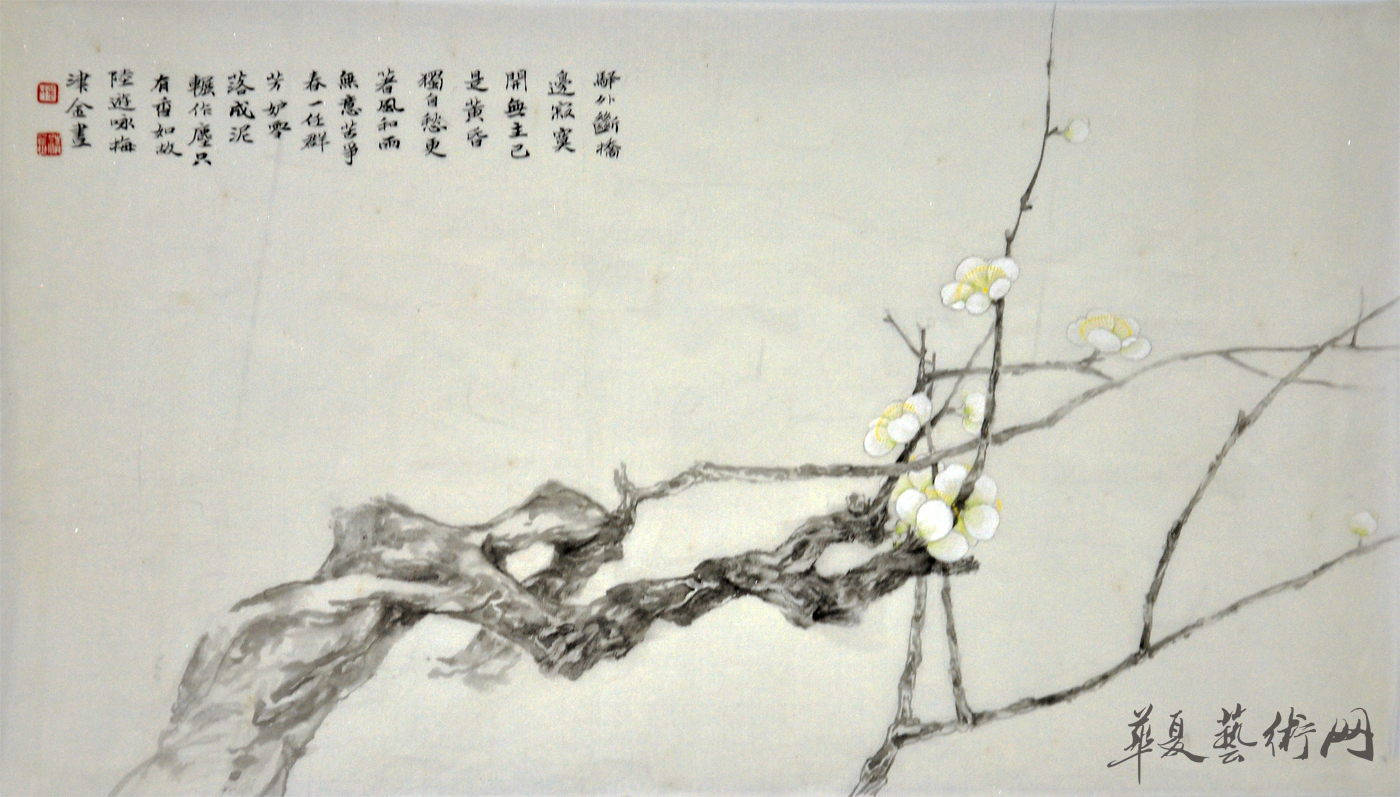 驛外斷橋
邊寂寞
開無主已
是黃昏
獨自愁更
著風和雨
無意苦爭
春一任群
芳妒零
落成泥
輾作塵只
有香如故
陸遊咏梅
津金畫
華夏藝術网